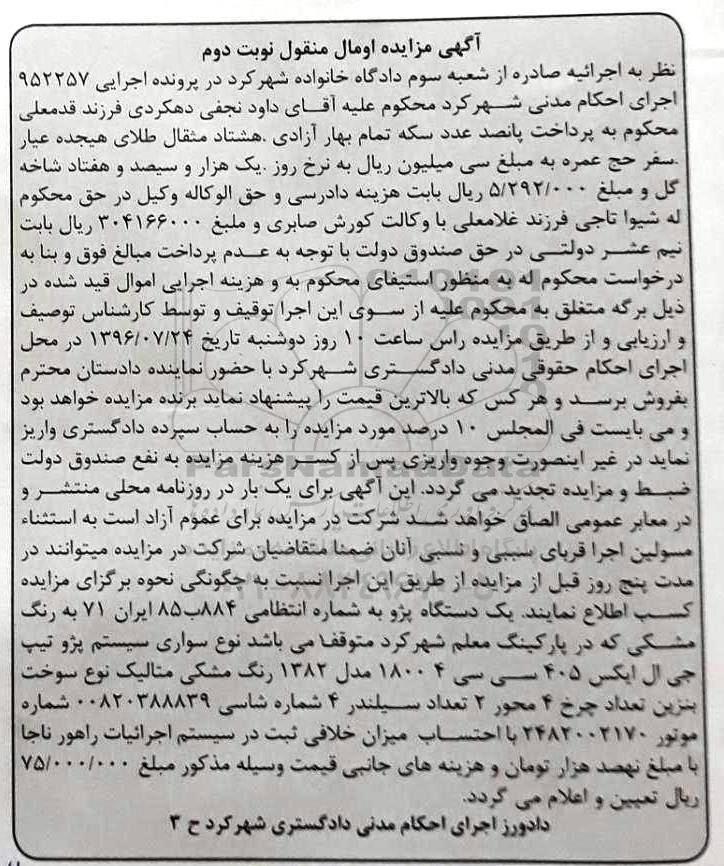 آگهی مزایده اومال منقول نوبت دوم
نظر به اجرائیه صادره از شعبه سوم دادگاه خانواده شهرکرد در پرونده اجرایی ۹۵۲۲۵۷
اجرای احکام مدنی شهرکرد محکوم علیه آقای داود نجفی دهکردی فرزند قدمعلی
محکوم به پرداخت پانصد عدد سکه تمام بهار آزادی .هشتاد مثقال طلای هیجده عیار
.سفر حج عمره به مبلغ سی میلیون ریال به نرخ روز .یک هزار و سیصد و هفتاد شاخه
گل و مبلغ ۵/۲۹۲/۰۰۰ ریال بابت هزینه دادرسی و حق الوکاله وکیل در حق محکوم
له شیوا تاجی فرزند غلامعلی با وکالت کورش صابری و ملبغ ۳۰۴۱۶۶۰۰۰ ریال بابت
نیم عشر دولتی در حق صندوق دولت با توجه به عدم پرداخت مبالغ فوق و بنا به
درخواست محکوم له به منظور استیفای محکوم به و هزینه اجرایی اموال قید شده در
ذیل برگه متغلق به محکوم علیه از سوی این اجرا توقیف و توسط کارشناس توصیف
و ارزیابی و از طریق مزایده راس ساعت ۱۰ روز دوشنبه تاریخ ۱۳۹۶/۰۷/۲۴ در محل
اجرای احکام حقوقی مدنی دادگستری شهرکرد با حضور نماینده دادستان محترم
بفروش برسد و هر کس که بالاترین قیمت را پیشنهاد نماید برنده مزایده خواهد بود
و می بایست فی المجلس ۱۰ درصد مورد مزایده را به حساب سپرده دادگستری واریز
نماید در غیر اینصورت وجوه واریزی پس از کسر هزینه مزایده به نفع صندوق دولت
ضبط و مزایده تجدید می گردد. این آگهی برای یک بار در روزنامه محلی منتشر و
در معابر عمومی الصاق خواهد شد شرکت در مزایده برای عموم آزاد است به استثناء
مسولین اجرا قربای سببی و نسبی آنان ضمنا متقاضیان شرکت در مزایده میتوانند در
مدت پنج روز قبل از مزایده از طریق این اجرا نسبت به چگونگی نحوه برگزای مزایده
کسب اطلاع نمایند. یک دستگاه پژو به شماره انتظامی ۸۸۴ب۸۵ ایران ۷۱ به رنگ
مشکی که در پارکینگ معلم شهرکرد متوقف می باشد نوع سواری سیستم پژو تیپ
جی ال ایکس ۴۰۵ سی سی ۴ ۱۸۰۰ مدل ۱۳۸۲ رنگ مشکی متالیک نوع سوخت
بنزین تعداد چرخ ۴ محور ۲ تعداد سیلندر ۴ شماره شاسی ۰۰۸۲۰۳۸۸۸۳۹ شماره
موتور ۲۴۸۲۰۰۲۱۷۰ با احتساب میزان خلافی ثبت در سیستم اجرائیات راهور ناجا
با مبلغ نهصد هزار تومان و هزینه های جانبی قیمت وسیله مذکور مبلغ ۷۵/۰۰۰/۰۰۰
ریال تعیین و اعلام می گردد.
دادورز اجرای احکام مدنی دادگستری شهرکرد ح ۳
ParsNamadData